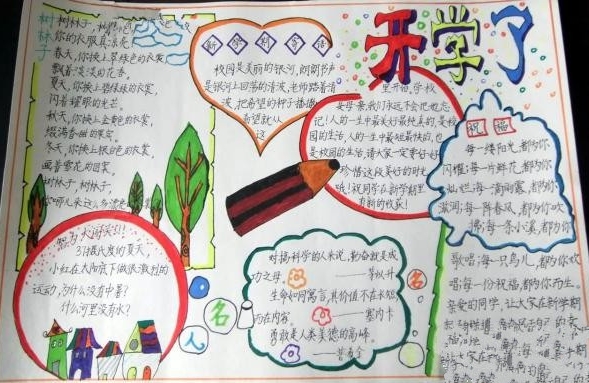 开学了
树林子
树林子，树林子，
你的衣服真漂亮
春天，你换上翠绿色的衣裳，
飘着淡淡的花香。
夏天，你换上碧绿的衣裳，
闪着耀眼的光芒。
秋天，你换上金黄色的衣裳，
摆满香甜的果实。
冬天，你换上银白色的衣裳，
画着雪花的图案。
树林子，树林子，
新学期寄语
校园是美丽的银河，朗朗书声
是银河上回荡的清波，老师踏着清
波，把希望的种子播撒
希望就从
这
里开始，学校
母亲，我们永远不会把她忘
记！人的一生中最美好最纯真的，是校
园的生活，人的一生中最短最快的，也
是校园的生活，请大家一定要好好
珍惜这段美好的时光
哦！祝同学在新学期里
有新的收获！
祝福
每一缕阳光，都为你
闪耀；每一片鲜花，都为你
灿烂；每一滴雨露，都为你
滋润；每一阵春风，都为你吹
拂；每一条小溪，都为你
歌唱；每一只鸟儿，都为你欢
唱；每一份祝福，都为你而生。
亲爱的同学，让大家在新学期
脑筋急转弯
37摄氏度的夏天，
小红在太阳底下做很激烈的
运动，为什么没有中暑？
什么河里没有水？
名人名言
对搞科学的人来说，勤奋就是成
功之母。
——茅以升
生命如同寓言，其价值不在长短
而在内容。
——塞内卡
勇敢是人类美德的高峰。
——普希金